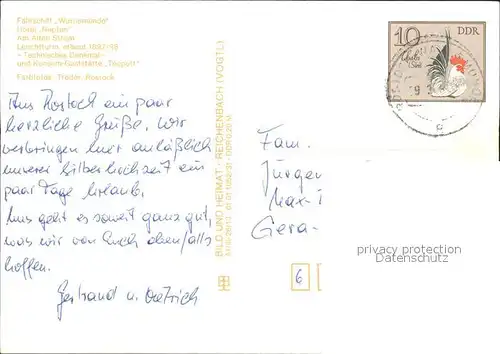 Fährschiff „Warnemünde"
Hotel „Neptun"
Am Alten Strom
Leuchtturm, erbaut 1897/98
- Technisches Denkmal -
und Konsum-Gaststätte „Teepott"
Farbfotos: Thieler, Rostock
Aus Rostock ein paar
herzliche Grüße. Wir
verbringen hier anläßlich
unserer Silberhochzeit ein
paar Tage Urlaub.
Uns geht es soweit ganz gut,
was wir von Euch ebenfalls
hoffen.
Gertraud u. Dietrich
BILD UND HEIMAT · REICHENBACH (VOGTL)
10 DDR
Fam.
Jürgen
Max-
Gera-
6
privacy protection
Datenschutz